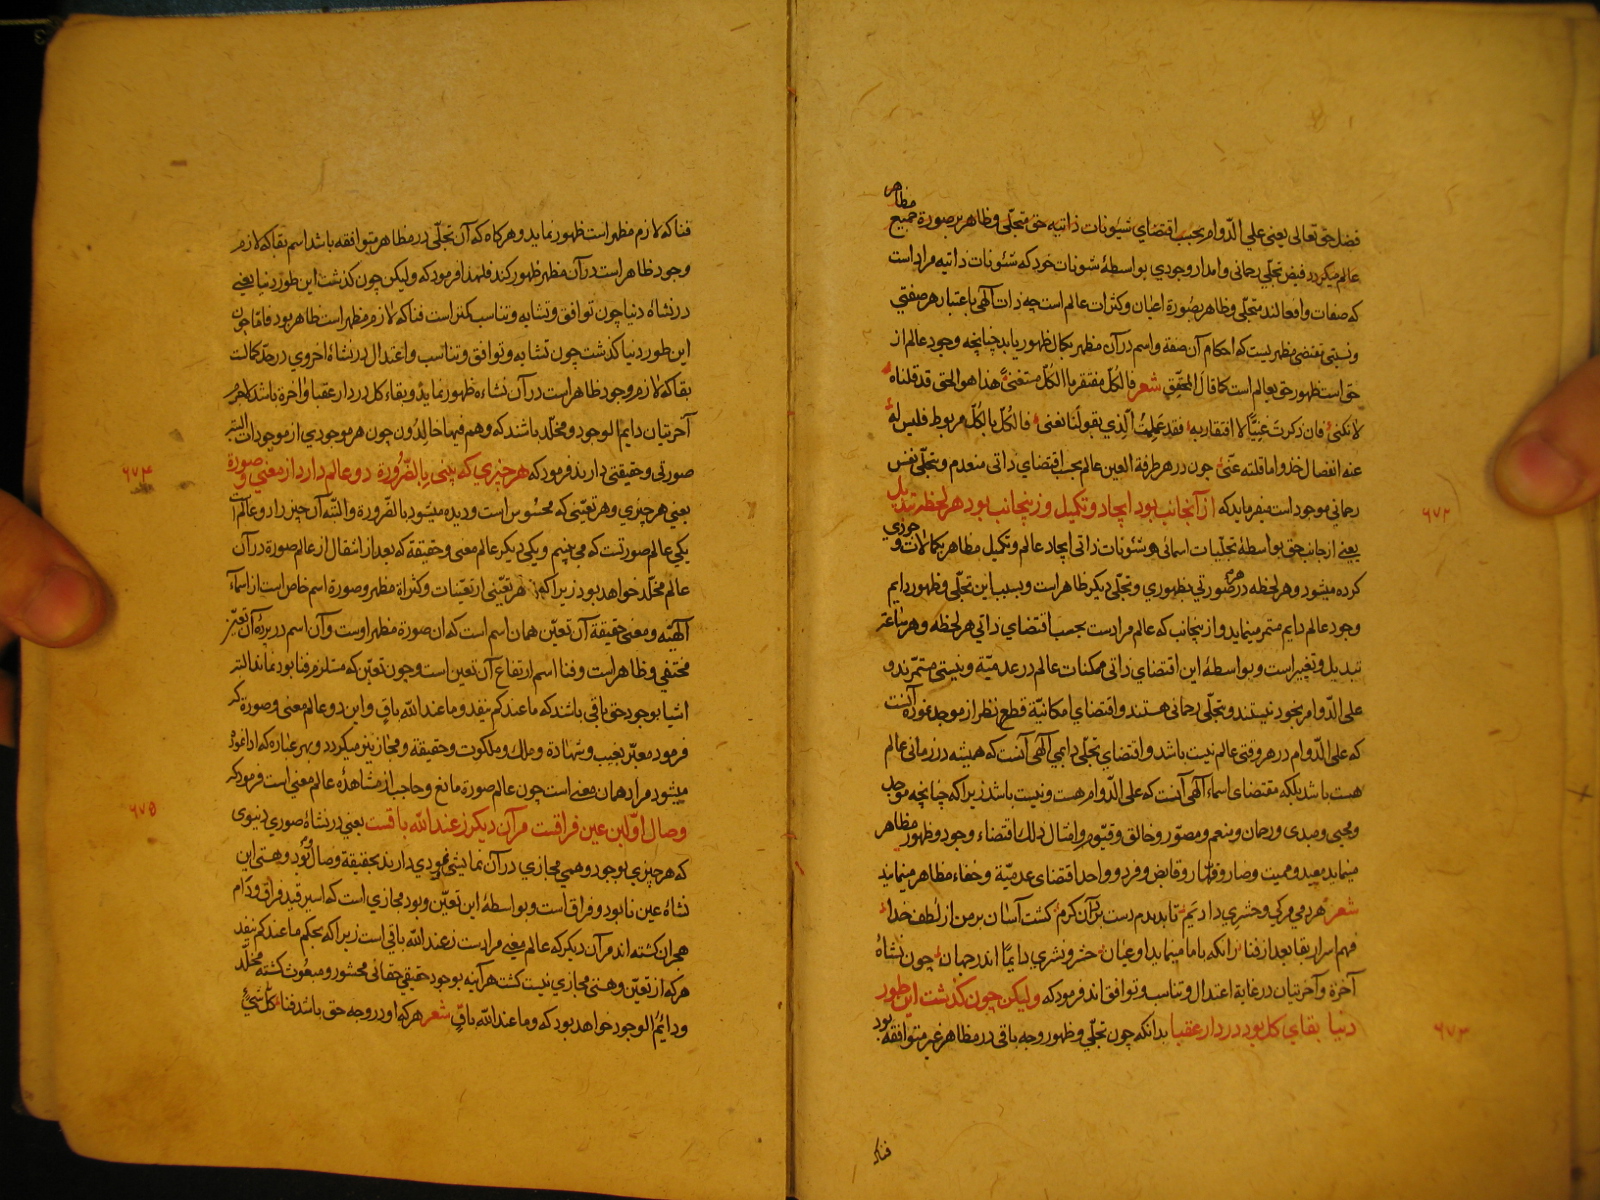 مظاهر
فضل حق تعالی یعنی علی الدّوام بحسب اقتضای شیٔونات ذاتیه حق متجلّی و ظاهر بر صورة جمیع
عالم میکردد فیض تجلّی رحمانی و امداد وجودی بواسطهٔ شیٔونات خود که شیٔونات ذاتیه مراد است
که صفات و افعالند متجلّی و ظاهر بصورة اعیان و کثرات عالم است چه ذات آلهی باعتبار هر صفتی
و نسبتی مقتضی مظهریست که احکام آن صفة و اسم در آن مظهر بکمال ظهور یابد چنانچه وجود عالم از
حق است ظهور حق بعالم است کما قال المحقق شعر فالکلّ مفتقر ما الکلّ مستغنی هذا هو الحق قد قلناه
لا نکنی فان ذکرت غنیّا لا افتقار به فقد علمت الّذی بقولنا نعنی فالکلّ بالکلّ مربوط فلیس له
عنه انفصال خذوا ما قلته عنّی چون در هر طرفة العین عالم بحسب اقتضای ذاتی منعدم و بتجلّی نفس
رحمانی موجود است میفرماید که از آنجانب بود ایجاد و تکمیل وزینجانب بود هر لحظه تبدیل
یعنی از جانب حق بواسطهٔ تجلّیات اسمائی و شئونات ذاتی ایجاد عالم و تکمیل مظاهر بکمالات وجودی
کرده میشود و هر لحظه در هر صورتی بظهوری و تجلّی دیکر ظاهر است و بسبب این تجلّی و ظهور دایم
وجود عالم دایم مستمر مینماید و از ینجانب که عالم مراد ست بحسب اقتضای ذاتی هر لحظه و هر ساعة
تبدیل و تغییر است و بواسطهٔ این اقتضای ذاتی ممکنات عالم در عدمیّة و نیستی مستمرّند و
علی الدّوام بخود نیستند و تجلّی رحمانی هستند و اقتضای امکانیّة قطع نظر از موجد نموده آنست
که علی الدّوام در هر وقتی عالم نیست باشد و اقتضای تجلّی دایمی آلهی آنست که همیشه در زمانی عالم
هست باشد بلکه مقتضای اسماء آلهی آنست که علی الدّوام هست و نیست باشد زیرا که چنانچه موجد
و محیی و مبدی و رحمان و منعم و مصوّر و خالق و قیّوم و امثال ذلک اقتضاء وجود و ظهور مظاهر
مینماید معید و ممیت و ضار و قهّار و قابض و فرد و واحد اقتضای عدمیّة و خفاء مظاهر مینماید
شعر هر دمی مرکی و حشری دادیم تا بدیدم دست برد آن کرم کشت آسان بر من از لطف خدا
فهم اسرار بقا بعد از فنا زانکه با ما مینماید او عیان حشر و نشری دایمًا اندر جهان چون نشاهٔ
آخرة و آخرتیان در غایة اعتدال و تناسب و توافق اند فرمود که ولیکن چون کذشت این طور
دنیا بقای کل بود در دار عقبا بدانکه چون تجلّی و ظهور وجه باقی در مظاهر غیر متوافقه بود
۶۷۲
۶۷۳
فناکه
فنا که لازم مظهر است ظهور نماید و هر کاه که آن تجلّی در مظاهر متوافقه باشد اسم بقا که لازم
وجود ظاهر است در آن مظهر ظهور کند فلهذا فرمود که ولیکن چون کذشت این طور دنیا یعنی
در نشاهٔ دنیا چون توافق و تشابه و تناسب کمتر است فنا که لازم مظهر است ظاهر بود فامّا چون
این طور دنیا کذشت چون تشابه و توافق و تناسب و اعتدال در نشاهٔ اخروی در حدّ کمالست
بقا که لازم وجود ظاهر است در آن نشاءه ظهور نماید و بقاء کل در دار عقبا و آخرة باشد لاجرم
آخرتیان دایم الوجود و مخلّد باشند که و هم فیها خالدون چون هر موجودی از موجودات البته
صورتی و حقیقتی دارند فرمود که هر چیزی که بینی بالضّرورة دو عالم دارد از معنی و صورة
یعنی هر چیزی و هر تعیّنی که محسوس است و دیده میشود بالضّرورة و البتّه آن چیز را دو عالم است
یکی عالم صورتست که می بینیم و یکی دیکر عالم معنی و حقیقة که بعد از انتقال از عالم صورة در آن
عالم مخلّد خواهد بود زیرا که هر تعیّنی از تعیّنات و کثراة مظهر و صورة اسم خاص است از اسماء
آلهیّه و معنی حقیقة آن تعیّن همان اسم است که ان صورة مظهر اوست و آن اسم در پردهٔ آن تعیّن
مختفی و ظاهر است و فنا اسم ارتفاع آن تعین است و چون تعیّن که مستلزم فنا بود نماند البتّه
اشیا بوجود حق باقی باشند که ما عندکم ینفد و ما عند الله باقٍ و این دو عالم معنی و صورة که
فرمود معبّر بغیب و شهادة و ملک و ملکوت و حقیقة و مجاز نیز میکردد و بهر عبارة که ادا نموده
میشود مراد همان معنی است چون عالم صورة مانع و حاجب از مشاهدهٔ عالم معنی است فرمود که
وصال اوّلین عین فراقست مر آن دیکر ز عند الله باقست یعنی در نشاهٔ صوری دنیوی
که هر چیزی بوجود وهمی مجازی در آن نمایشی نمودی دارند بحقیقة وصال و بود و هستی این
نشاهٔ عین نابود و فراق است و بواسطهٔ این تعیّن و بود مجازی است که اسیر قید فراق و دام
هجران کشته اند مر آن دیکر که عالم معنی مراد ست ز عند الله باقی است زیرا که بحکم ما عندکم ینفد
هر که از تعیّن و هستی مجازی نیست کشت هر آینه بوجود حقیقی حقانی محشور و مبعوث کشته مخلّد
و دایم الوجود خواهد بود که و ما عند الله باقٍ شعر هر که او در وجه حق باشد فنا کلّ شیءٍ
۶۷۴
۶۷۵